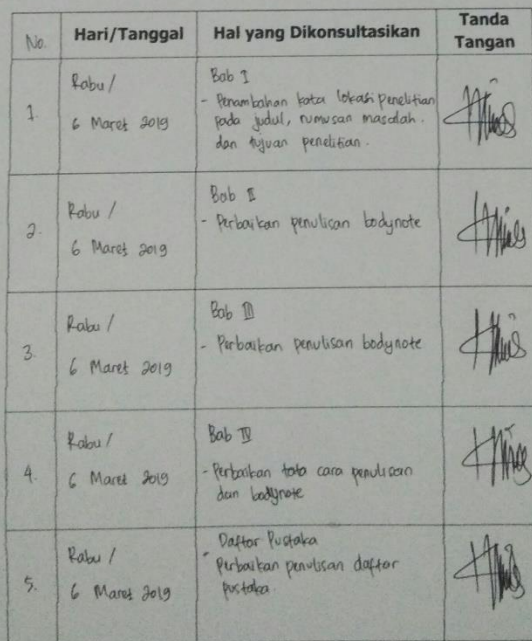 No. Hari/Tanggal Hal yang Dikonsultasikan Tanda Tangan
1. Rabu / 6 Maret 2019
Bab I
- Penambahan kata lokasi penelitian
pada judul, rumusan masalah.
dan tujuan penelitian.
2. Rabu / 6 Maret 2019
Bab II
- Perbaikan penulisan bodynote
3. Rabu / 6 Maret 2019
Bab III
- Perbaikan penulisan bodynote
4. Rabu / 6 Maret 2019
Bab IV
- Perbaikan tata cara penulisan
dan bodynote
5. Rabu / 6 Maret 2019
Daftar Pustaka
- Perbaikan penulisan daftar
pustaka.